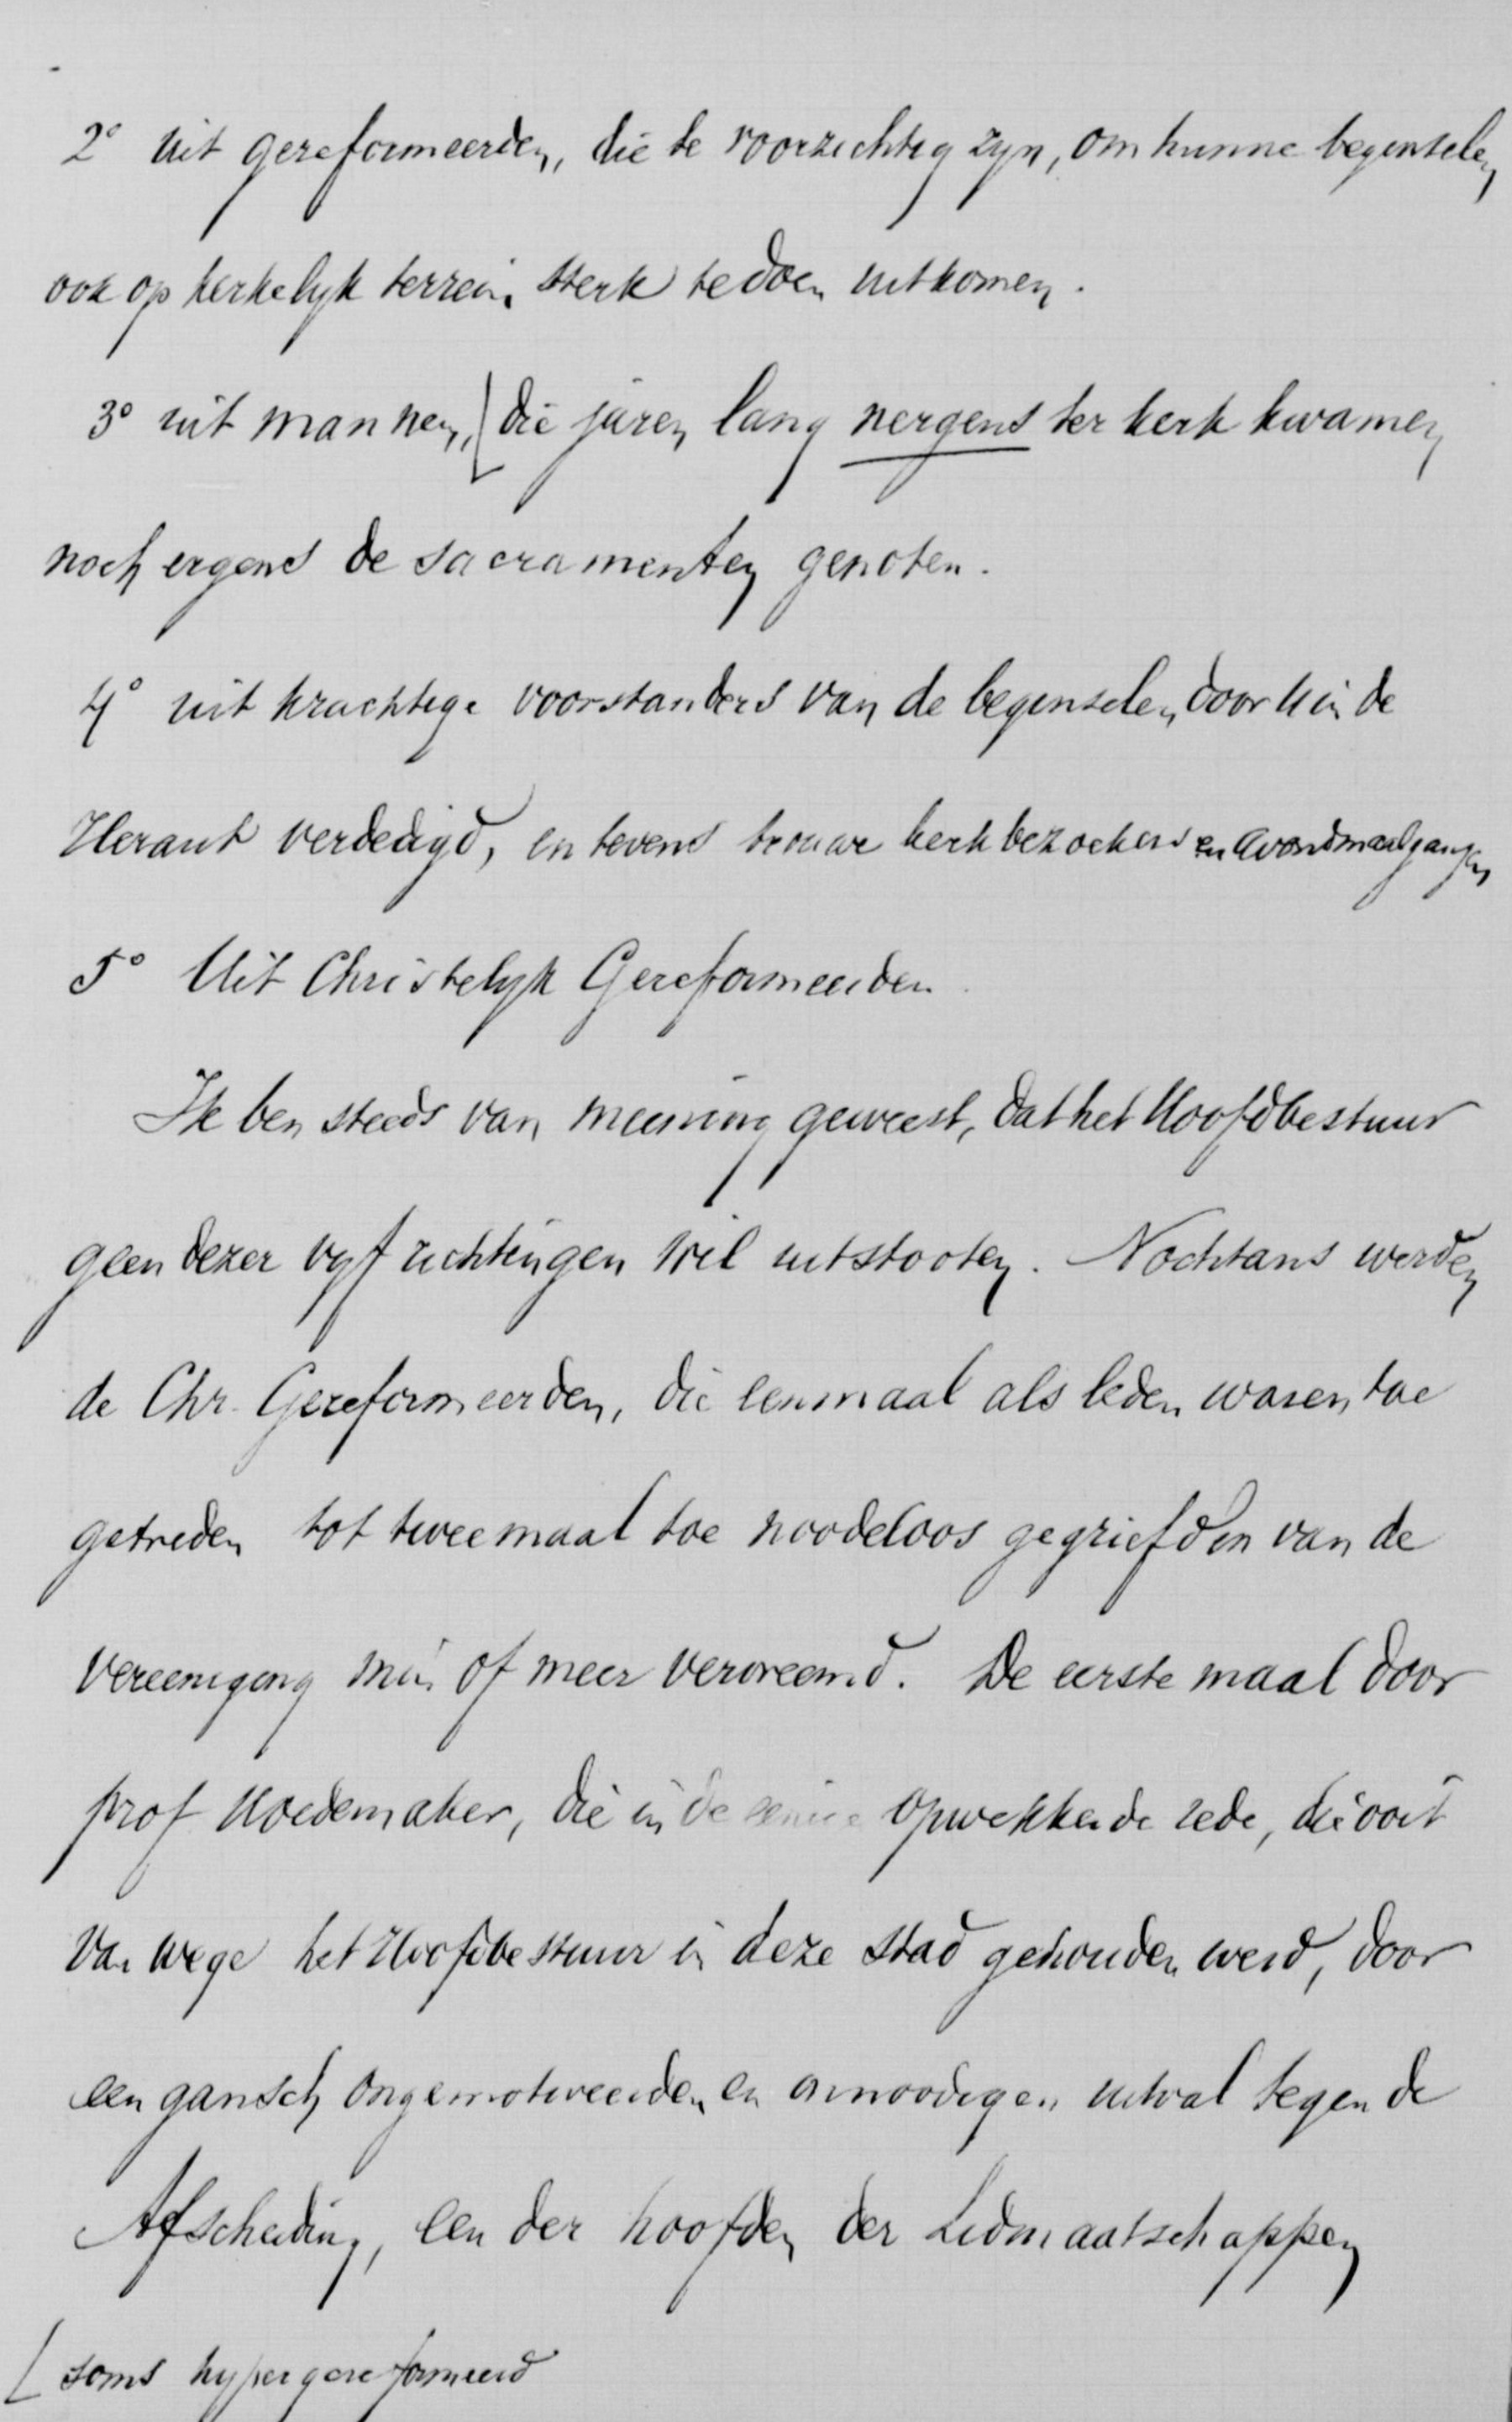 2° uit gereformeerden, die te voorzichtig zyn, om hunne beginselen
ook op kerkelyk terrein sterk te doen uitkomen.
3° uit mannen, [ die jaren lang nergens ter kerk kwamen
noch ergens de sacramenten genoten.
4° uit krachtige voorstanders van de beginselen door U in de
Heraut verdedigd, en tevens trouwe kerkbezoekers en avondmaalgangers
5° Uit Christelyk Gereformeerden.
Ik ben steeds van meening geweest, dat het Hoofdbestuur
geen dezer vyf richtingen wil uitstooten. Nochtans werden
de Chr. Gereformeerden, die eenmaal als leden waren toe
getreden tot tweemaal toe noodeloos gegriefd en van de
vereeniging min of meer vervreemd. De eerste maal door
prof Hoedemaker, die in de eenige opwekkende rede, die ooit
van wege het Hoofdbestuur in deze stad gehouden werd, door
een gansch ongemotiveerden en onnoodigen uitval tegen de
Afscheiding, een der hoofden der Lidmaatschappen
[ soms hypergereformeerd